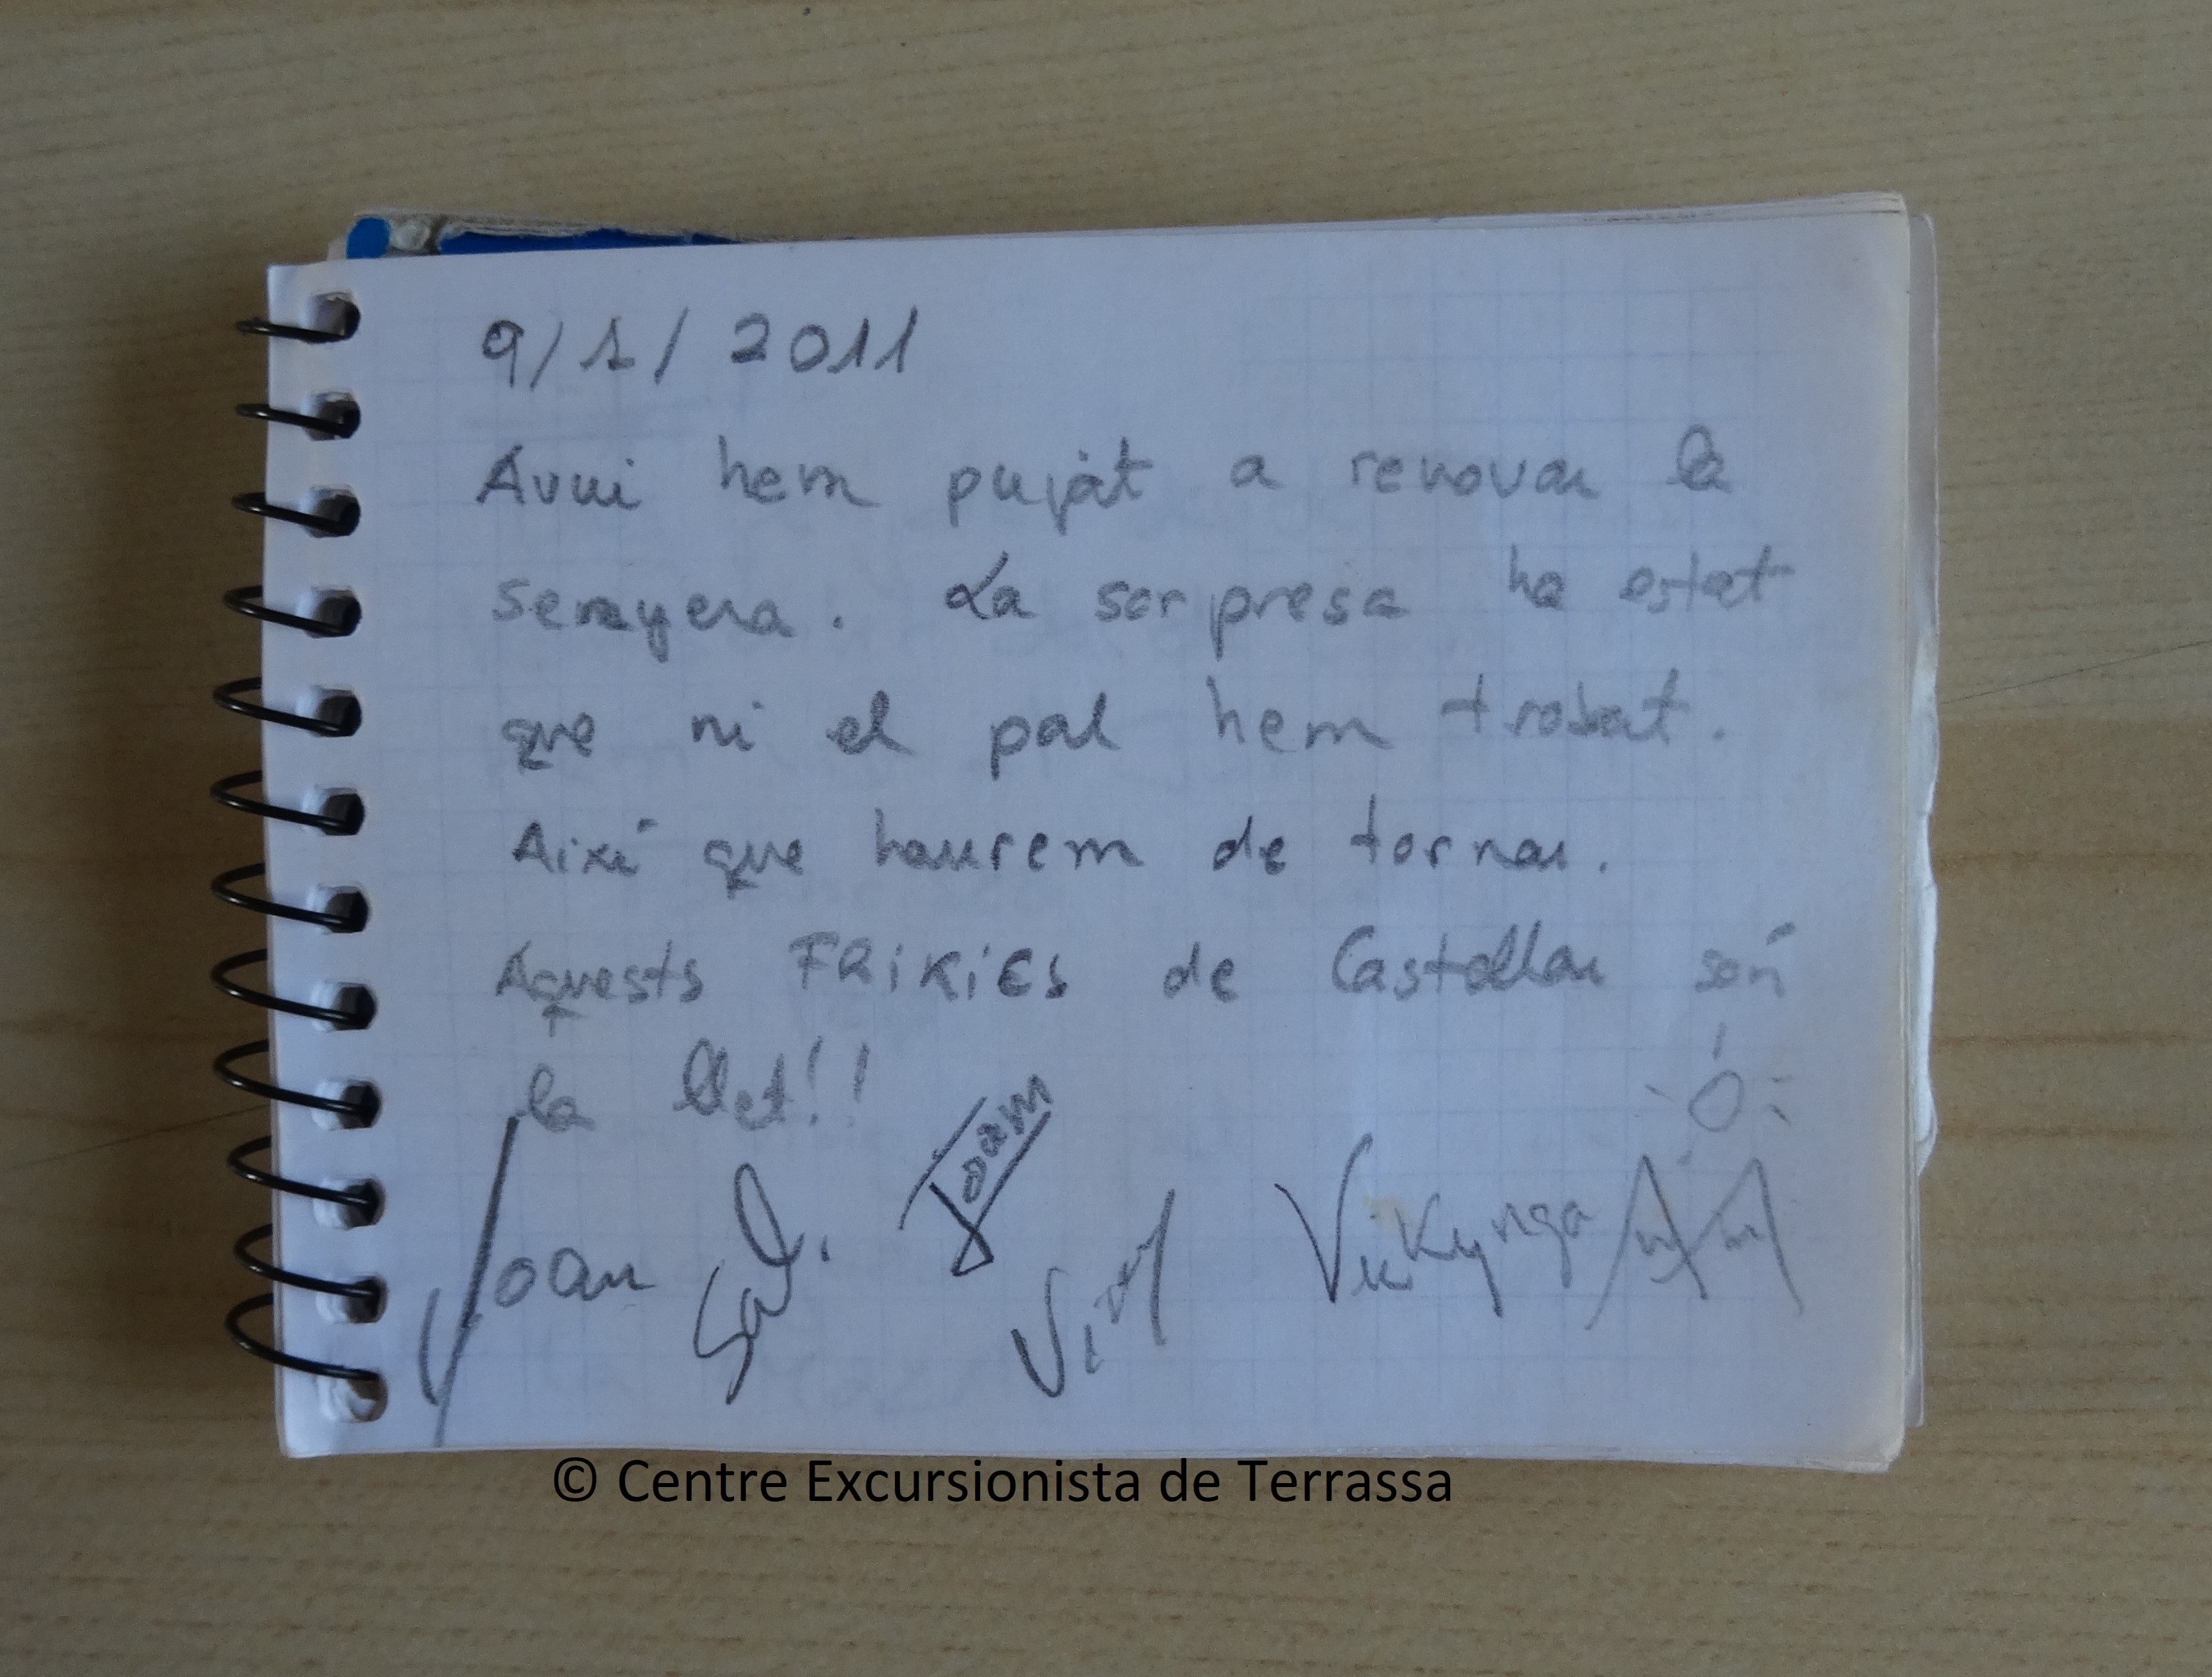 9/1/2011
Avui hem pujat a renovar la
senyera. La sorpresa ha estat
que ni el pal hem trobat.
Així que haurem de tornar.
Aquests FRiKiES de Castellar són
la llet!!
Joan
Joam
Vikynga
© Centre Excursionista de Terrassa